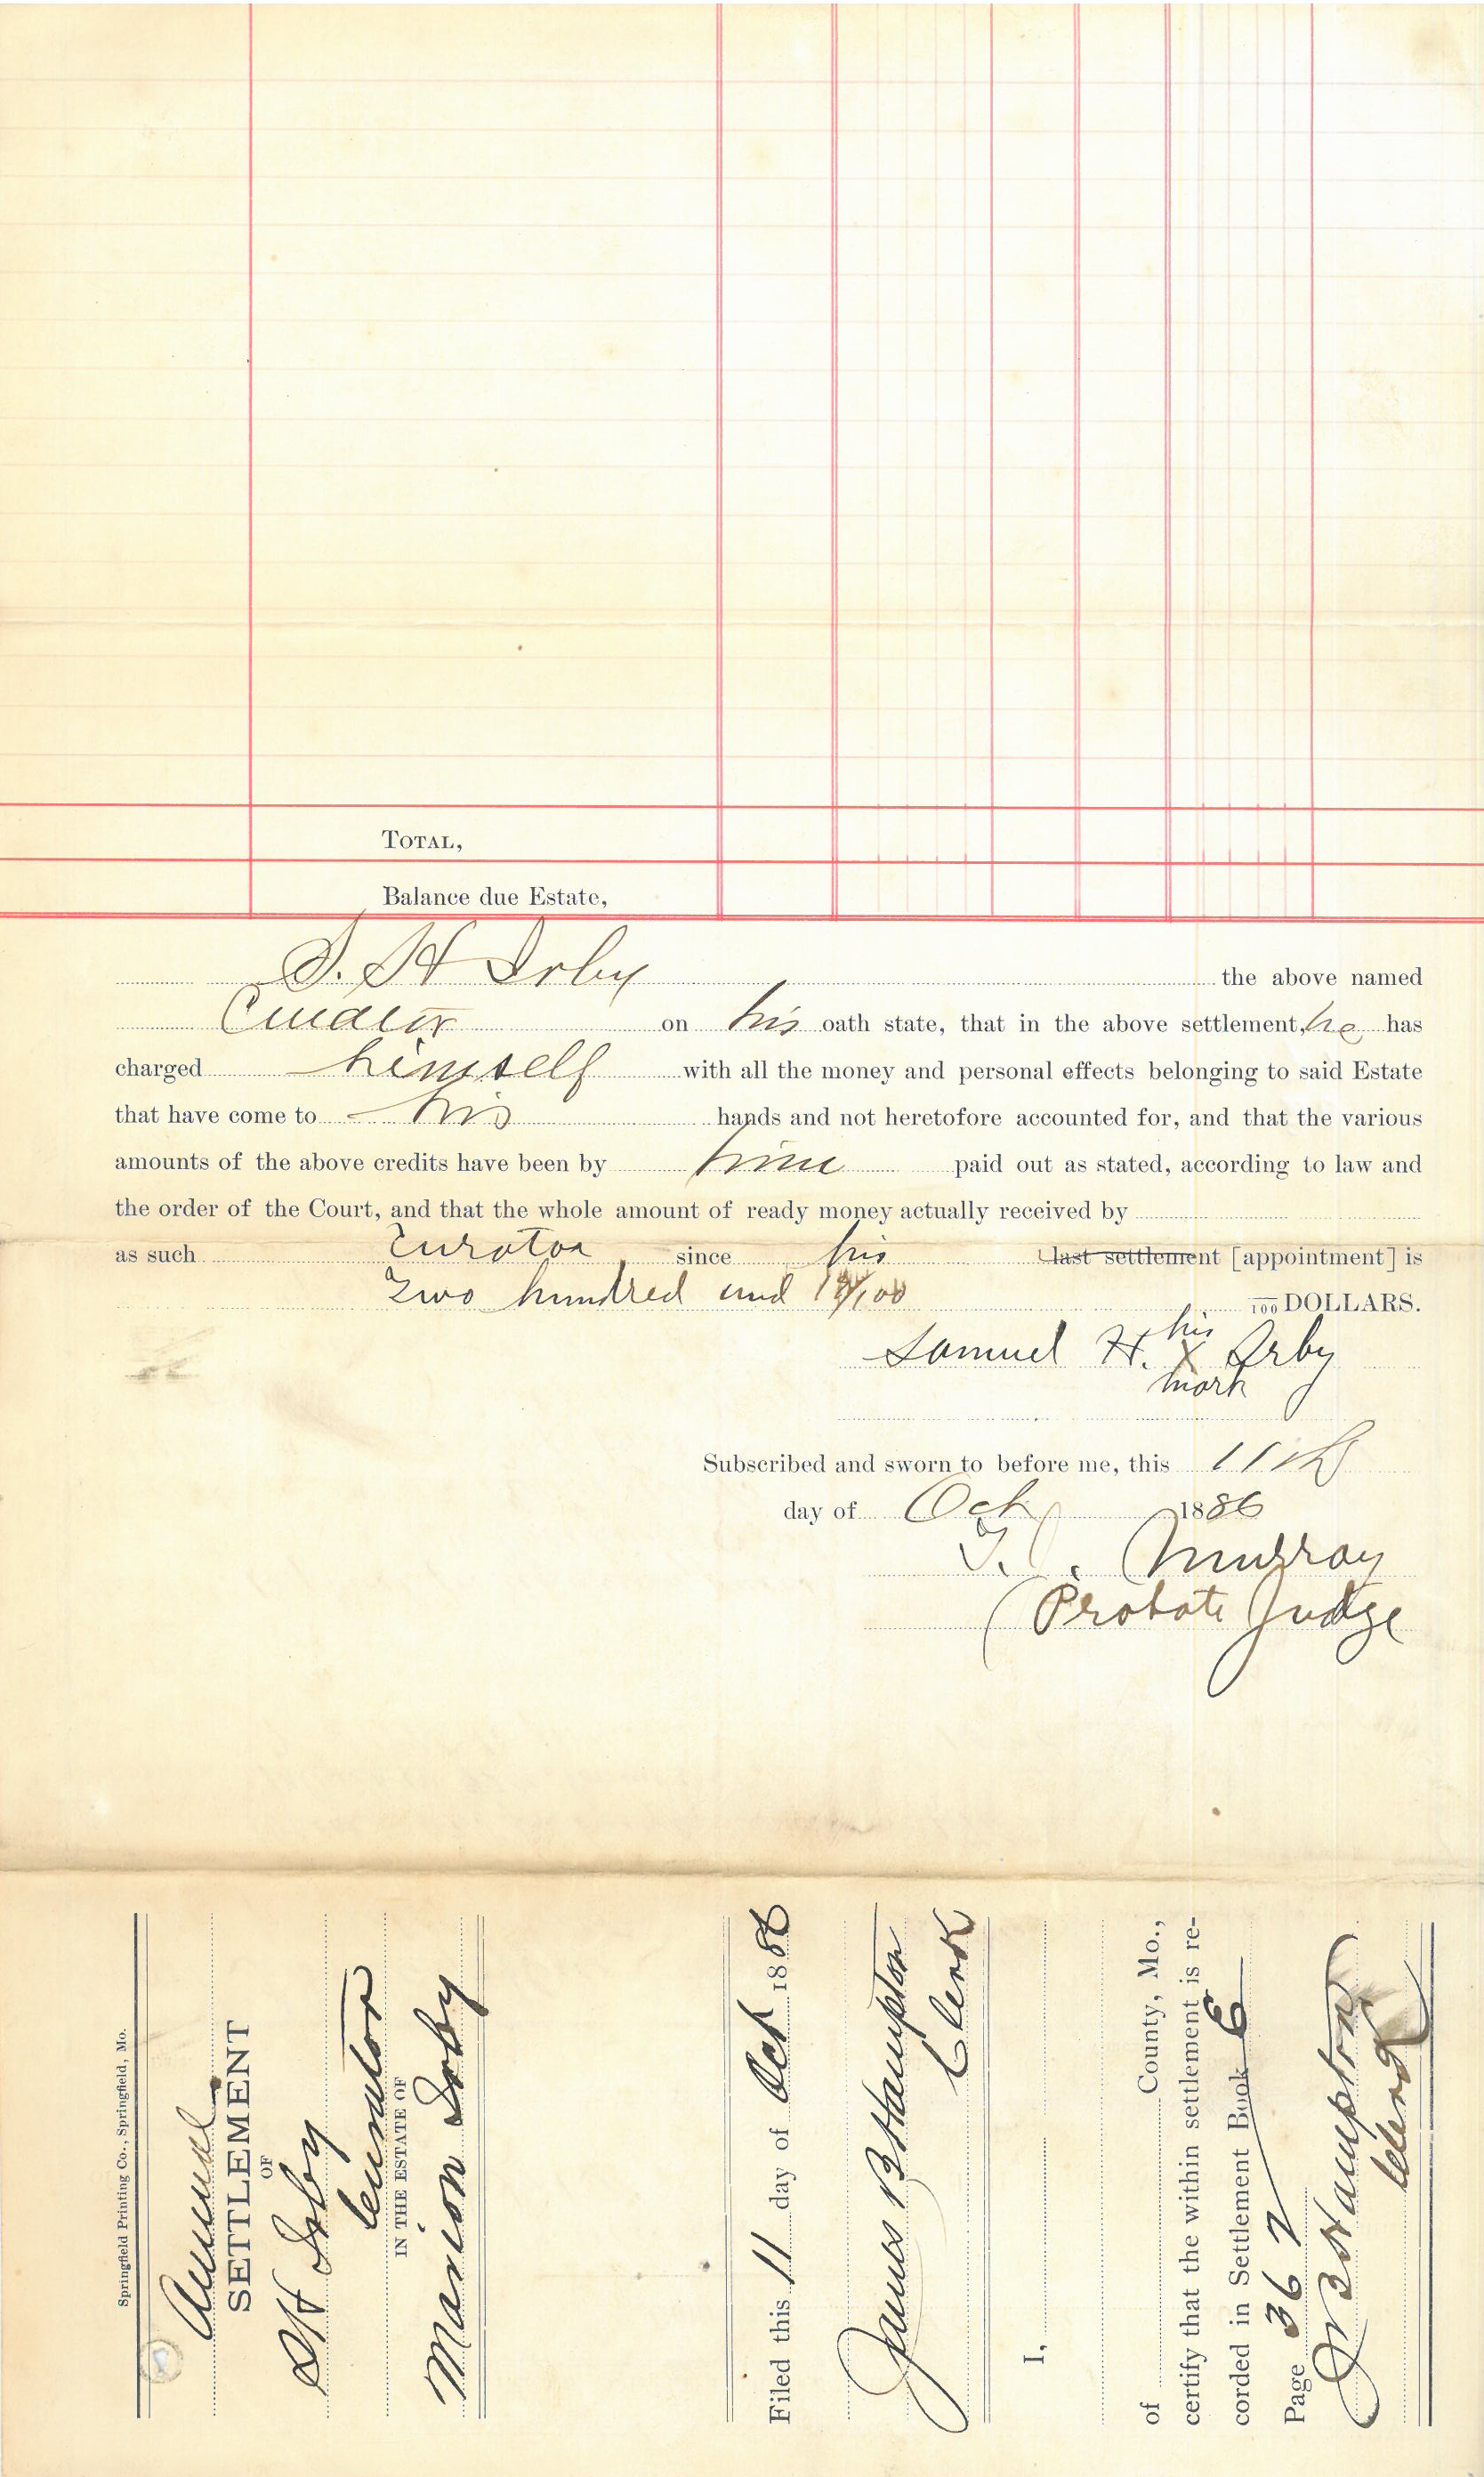 TOTAL,
Balance due Estate,
S. H Irby the above named
Curator on his oath state, that in the above settlement, he has
charged himself with all the money and personal effects belonging to said Estate
that have come to his hands and not heretofore accounted for, and that the various
amounts of the above credits have been by him paid out as stated, according to law and
the order of the Court, and that the whole amount of ready money actually received by
as such Curator since his last settlement [appointment] is
Two hundred and /100 /100 DOLLARS.
his
Samuel H. X Irby
mark
Subscribed and sworn to before me, this 11th
day of Oct 1886
Murray
Probate Judge
Springfield Printing Co., Springfield, Mo.
Annual
SETTLEMENT
OF
S H Irby
Curator
IN THE ESTATE OF
Marion Irby
Filed this 11 day of Oct 1886
James B Hampton
Clerk
I,
of County, Mo.,
certify that the within settlement is re-
corded in Settlement Book 6
Page 362
J B Hampton
Clerk